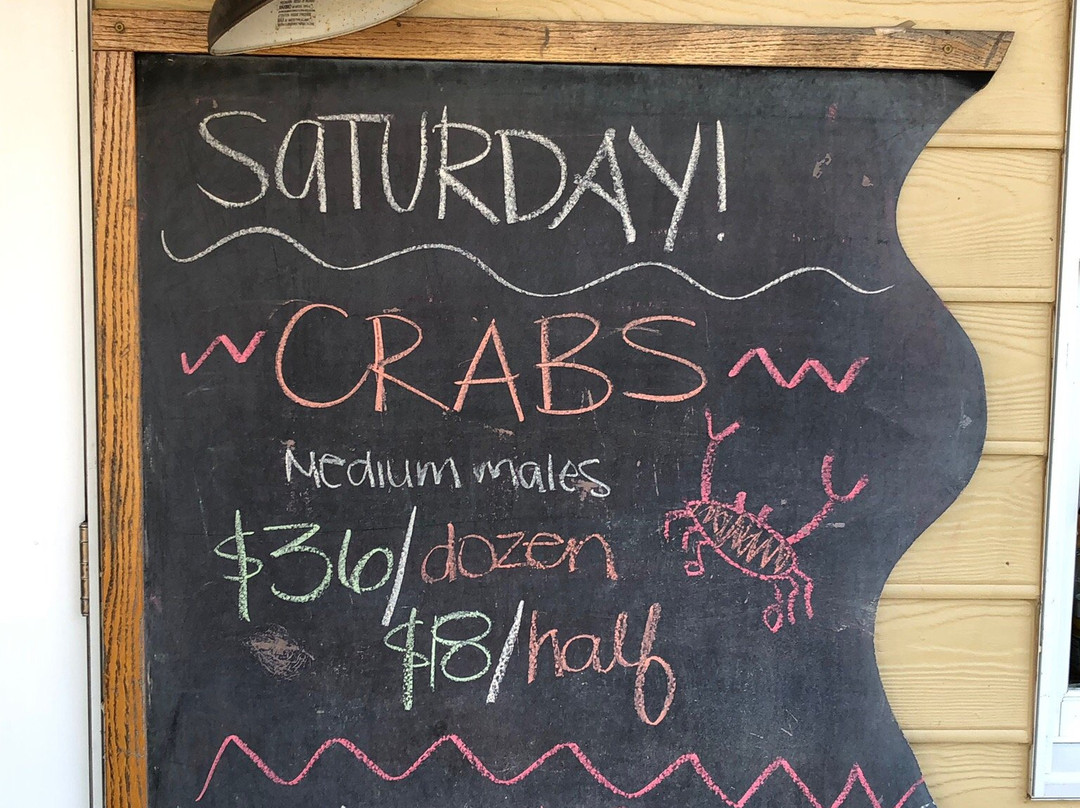 SaTURDAY!
CRABS
Medium males
$36/dozen
$18/half